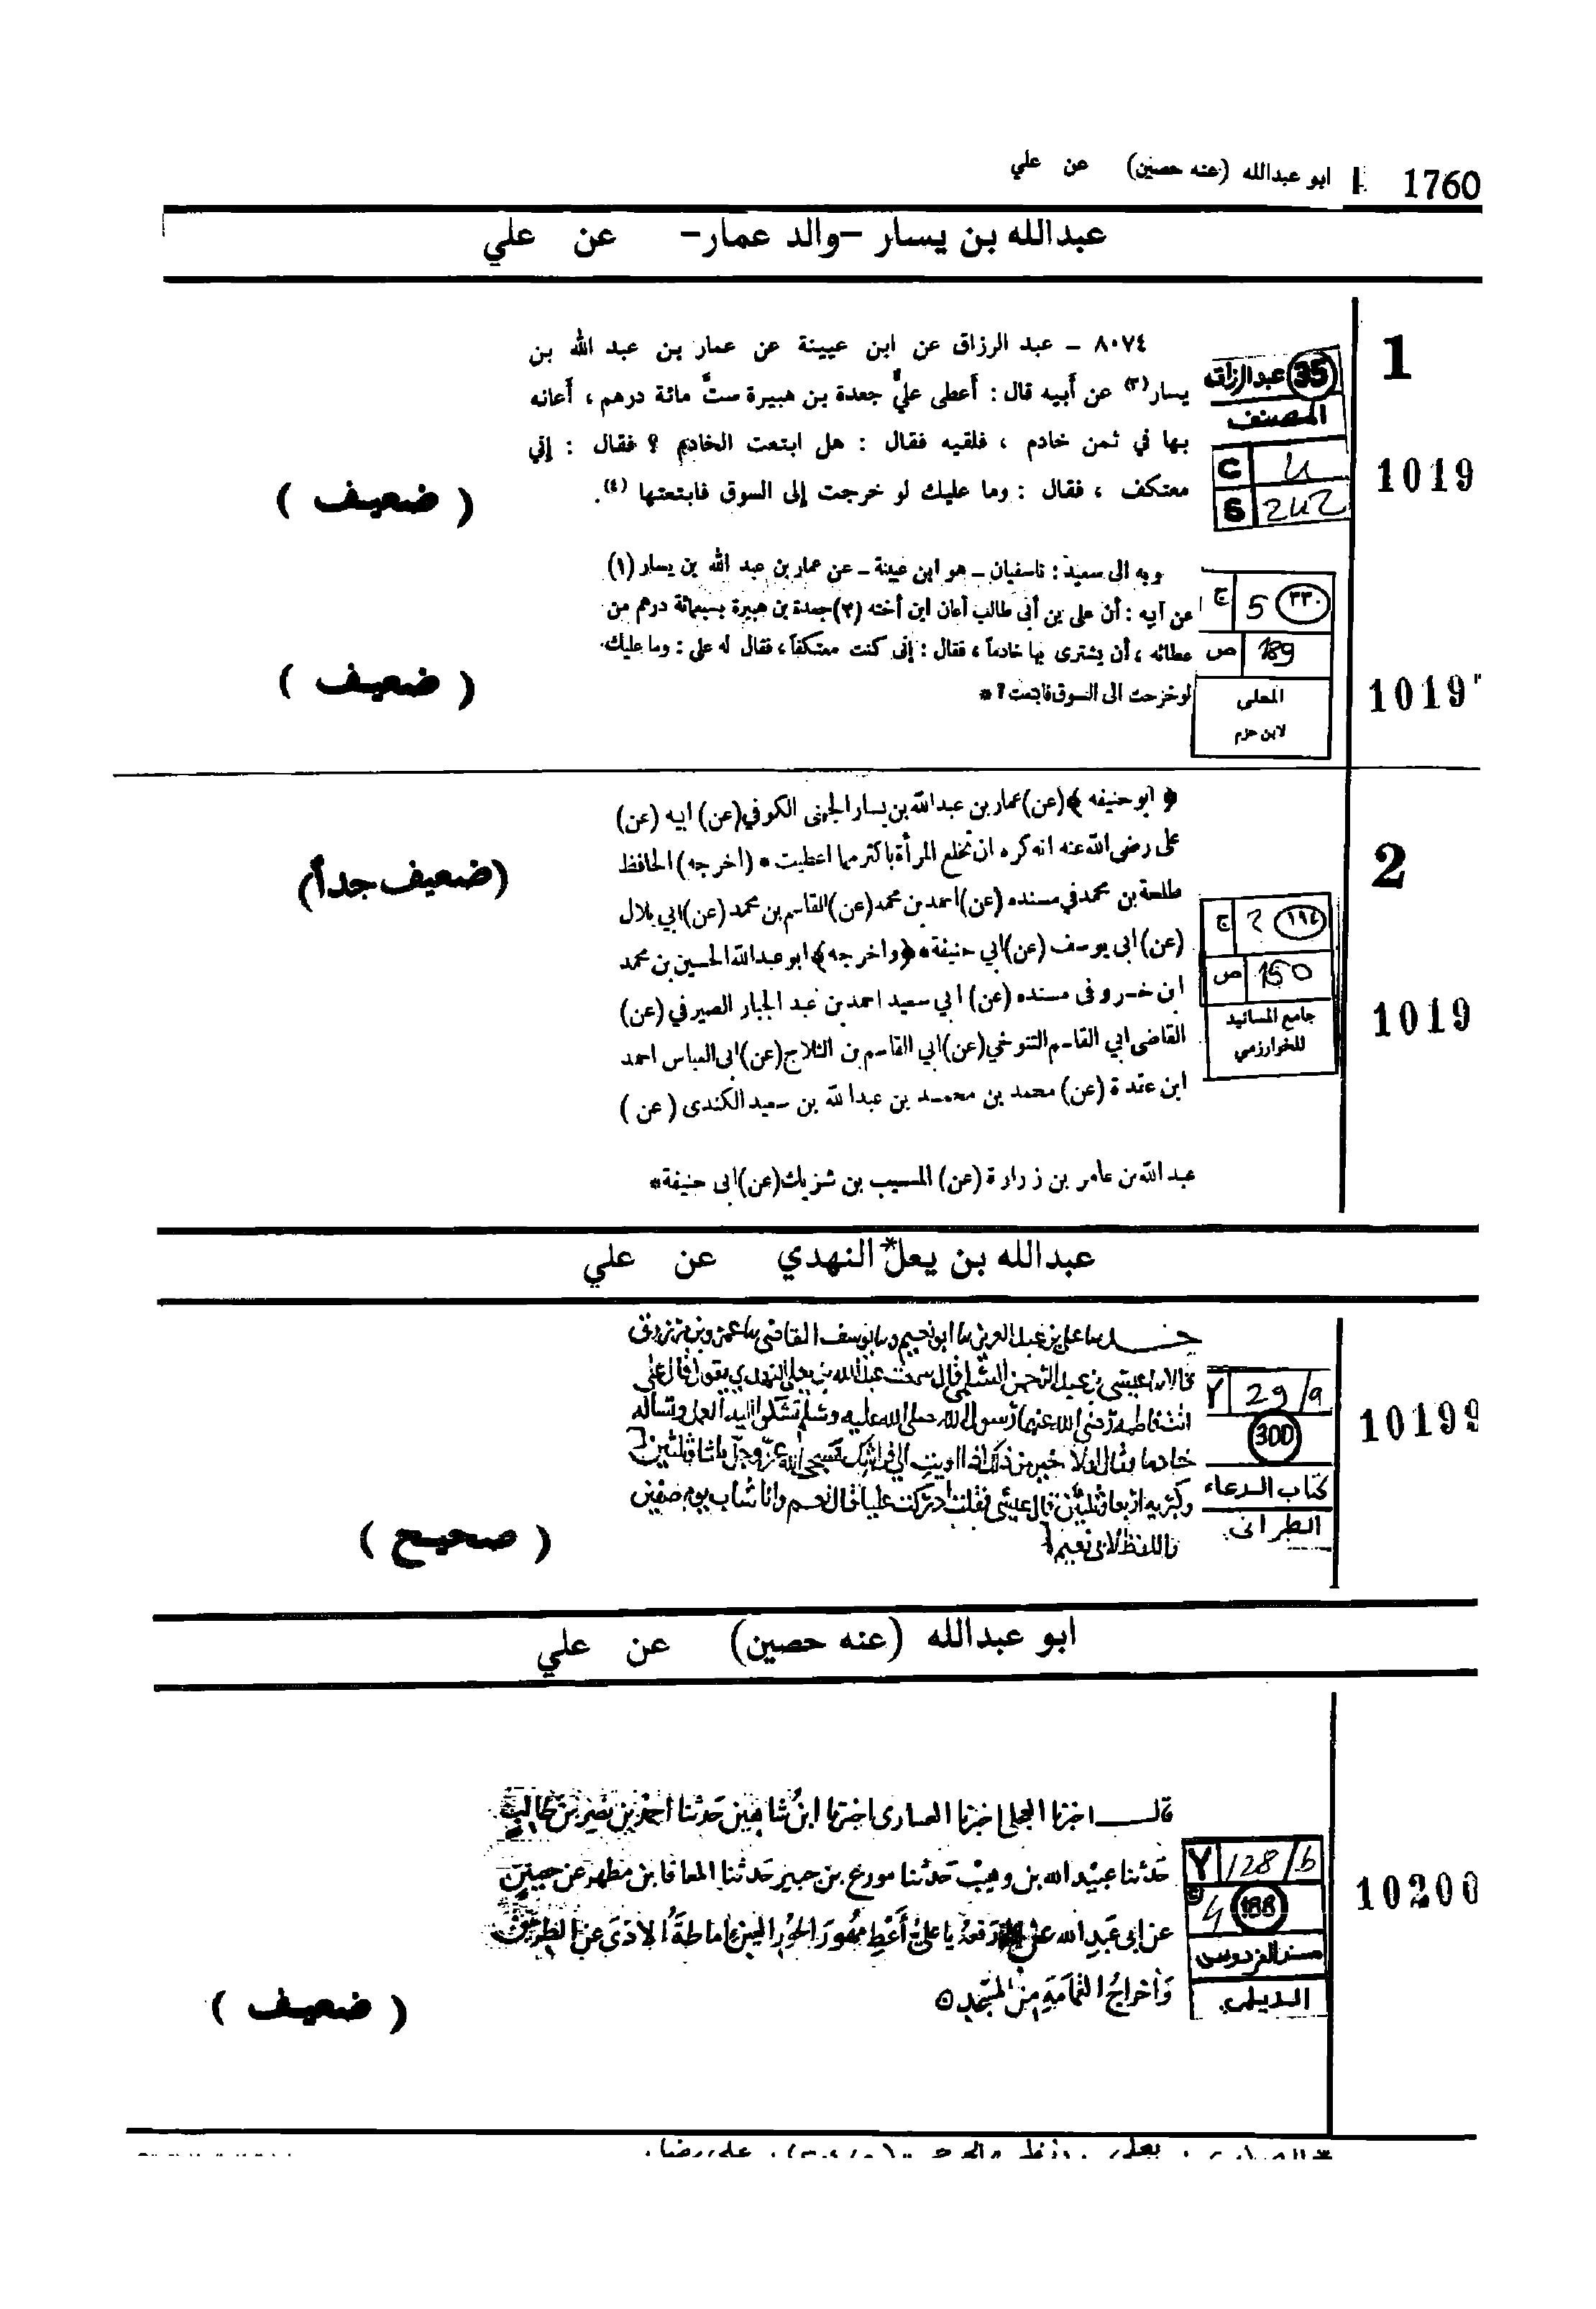 1760 ابو عبدالله (عنه حصين) عن علي
عبدالله بن يسار -والد عمار- عن علي
1
٨٠٧٤ - عبد الرزاق عن ابن عيينة عن عمار بن عبد الله بن
يسار (٣) عن أبيه قال : أعطى عليٌّ جعدة بن هبيرة ستَّ مائة درهم ، أعانه
بها في ثمن خادم ، فلقيه فقال : هل ابتعت الخادم ؟ فقال : إني
معتكف ، فقال : وما عليك لو خرجت إلى السوق فابتعتها (٤).
35 عبدالرزاق
المصنف
C 4
S 242
1019
( ضعيف )
وبه الى سعيد : ناسفيان ـ هو ابن عيينة ـ عن عمار بن عبد الله بن يسار (١)
عن أبيه : أن على بن أبى طالب أعان ابن أخته (٢) جعدة بن هبيرة بسبعمائة درهم من
عطائه ، أن يشترى بها خادماً ، فقال : إنى كنت معتكفاً ، فقال له على : وما عليك
لو خرجت الى السوق فابتعت ؟ *
ج 5 ٣٣٠
ص 189
المحلى
لابن حزم
1019
( ضعيف )
2
﴿ ابو حنيفه ﴾ (عن) عمار بن عبد الله بن يسار الجهنى الكوفي (عن) ابيه (عن)
على رضى الله عنه انه كره ان تخلع المرأة باكثر مما اعطيت * (اخرجه) الحافظ
طلحة بن محمد في مسنده (عن) احمد بن محمد (عن) القاسم بن محمد (عن) ابي بلال
(عن) ابى يوسف (عن) ابي حنيفة * ﴿واخرجه﴾ ابو عبد الله الحسين بن محمد
ابن خسرو فى مسنده (عن) ابي سعيد احمد بن عبد الجبار الصيرفي (عن)
القاضى ابي القاسم التنوخي (عن) ابي القاسم بن الثلاج (عن) ابى العباس احمد
ابن عقدة (عن) محمد بن محمد بن عبد الله بن سعيد الكندى (عن)
عبد الله بن عامر بن زرارة (عن) المسيب بن شريك (عن) ابى حنيفة *
ج 2 ١٩٤
ص 150
جامع المسانيد
للخوارزمي
1019
(ضعيف جداً)
عبدالله بن يعلى* النهدي عن علي
حدثنا علي بن عبد العزيز ثنا ابو نعيم وثنا يوسف القاضي ثنا عمرو بن مرزوق
قالا ثنا عيسى بن عبد الرحمن السلمي قال سمعت عبد الله بن يعلى النهدي يقول قال علي
اتت فاطمه رضي الله عنها رسول الله صلى الله عليه وسلم تشكو اليه العمل وتساله
خادما فقال اولا خير من ذلك اذا اويت الي فراشك تسبحي الله عز وجل ثلثا وثلثين
وكبريه اربعا وثلثين قال عيسى فقلت ادركت عليا قال نعم وانا شاب يوم صفين
واللفظ لابي نعيم
Y 29/a
300
كتاب الدعاء
الطبراني
10199
( صحيح )
ابو عبدالله (عنه حصين) عن علي
قال اخبرنا العجلي اخبرنا العشارى اخبرنا ابن شاهين حدثنا احمد بن نصير بن طالب
حدثنا عبيد الله بن وهيب حدثنا مورع بن جبير حدثنا المعافا بن مطهر عن حصين
عن ابى عبد الله عن علي رفعه يا علي أعط مهور الحور العين اماطة الاذى عن الطريق
واخراج القمامة من المسجد
Y 128/b
ج 4 188
مسند الفردوس
الديلمي
10200
( ضعيف )